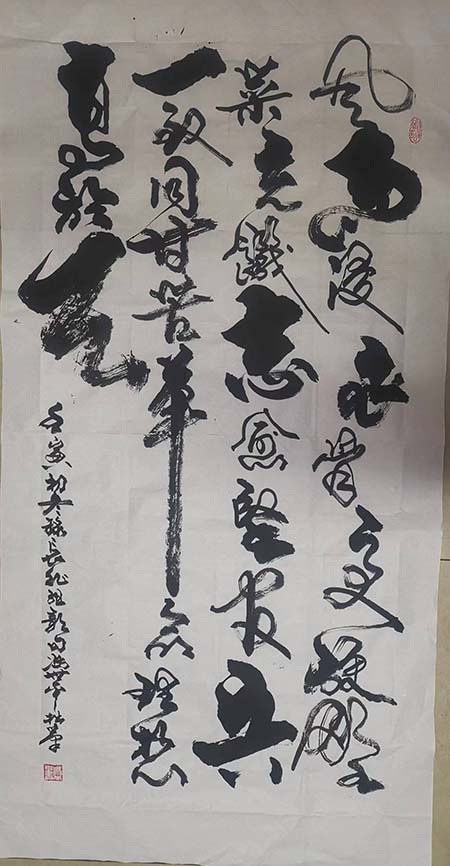 风雨浸衣骨更硬野
菜充饑志愈堅官兵
一致同甘苦革命理想
高於天
壬寅初冬錄長征組歌句